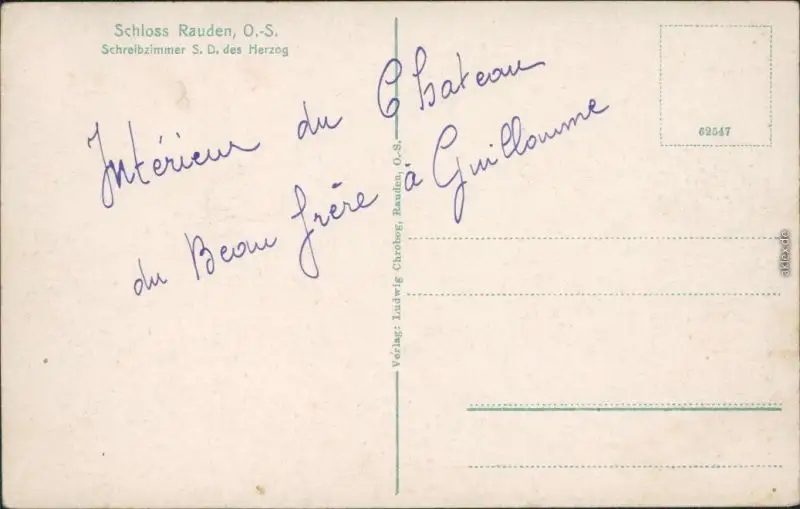 Schloss Rauden, O.-S.
Schreibzimmer S. D. des Herzog
62547
Intérieur du Chateau
du Beau frère à Guillaumme
Verlag: Ludwig Chrobog, Rauden, O.-S.
aklex.de